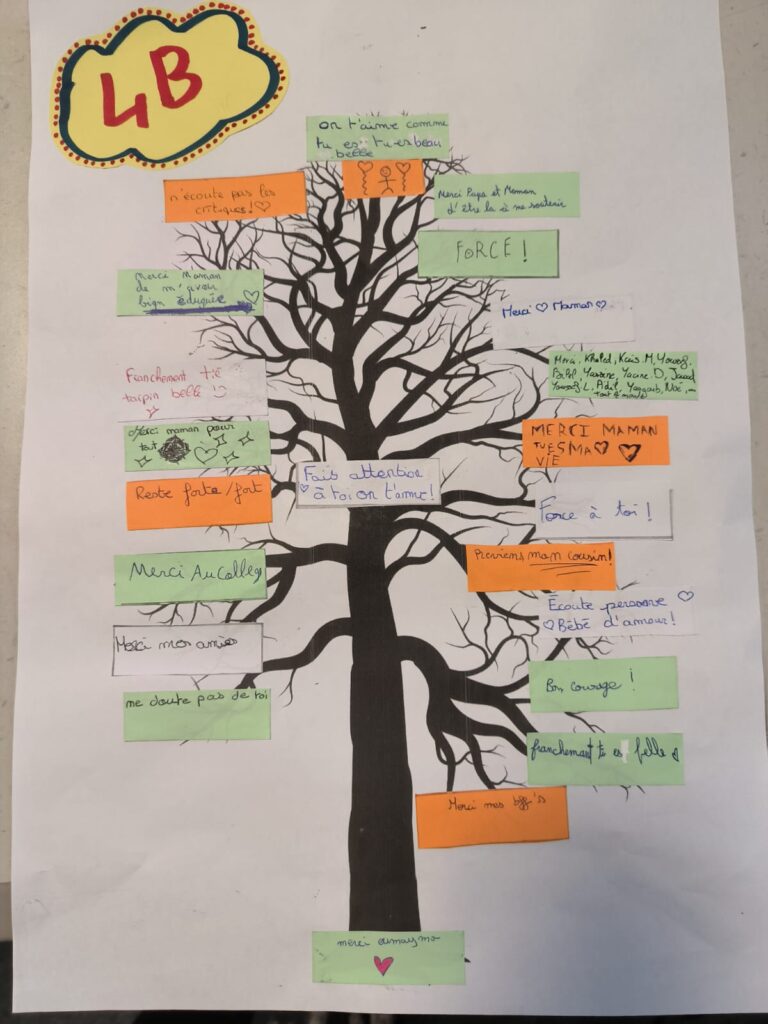 4B
on t'aime comme
tu es tu es beau
belle
n'écoute pas les
critiques!
Merci Papa et Maman
d'être la à me soutenir
FORCE !
Merci Maman
de m'avoir
bien éduquée
Merci Maman
Franchement t'é
tarpin belle
Merci, Khaled, Kais.M, Youcef,
Billel, Yassine, Yacine.D, Jawad,
Youssef.L, Adil, Yaggoub, Noé,
tout l'monde
Merci maman pour
tout
MERCI MAMAN
TU ES MA
VIE
Fais attention
à toi on t'aime!
Reste forte/fort
Force à toi !
Previens mon cousin!
Merci Au College
Écoute personne
Bébé d'amour!
Merci mes amies
Bon courage !
me doute pas de toi
franchement t es belle
Merci mes bff's
merci oumayma